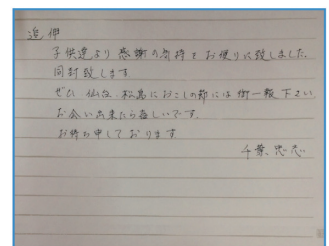 追伸
子供達より感謝の気持をお便りに致しました。
同封致します。
ぜひ、仙台、松島におこしの節には御一報下さい
お会い出来たら嬉しいです。
お待ち申しております
千葉